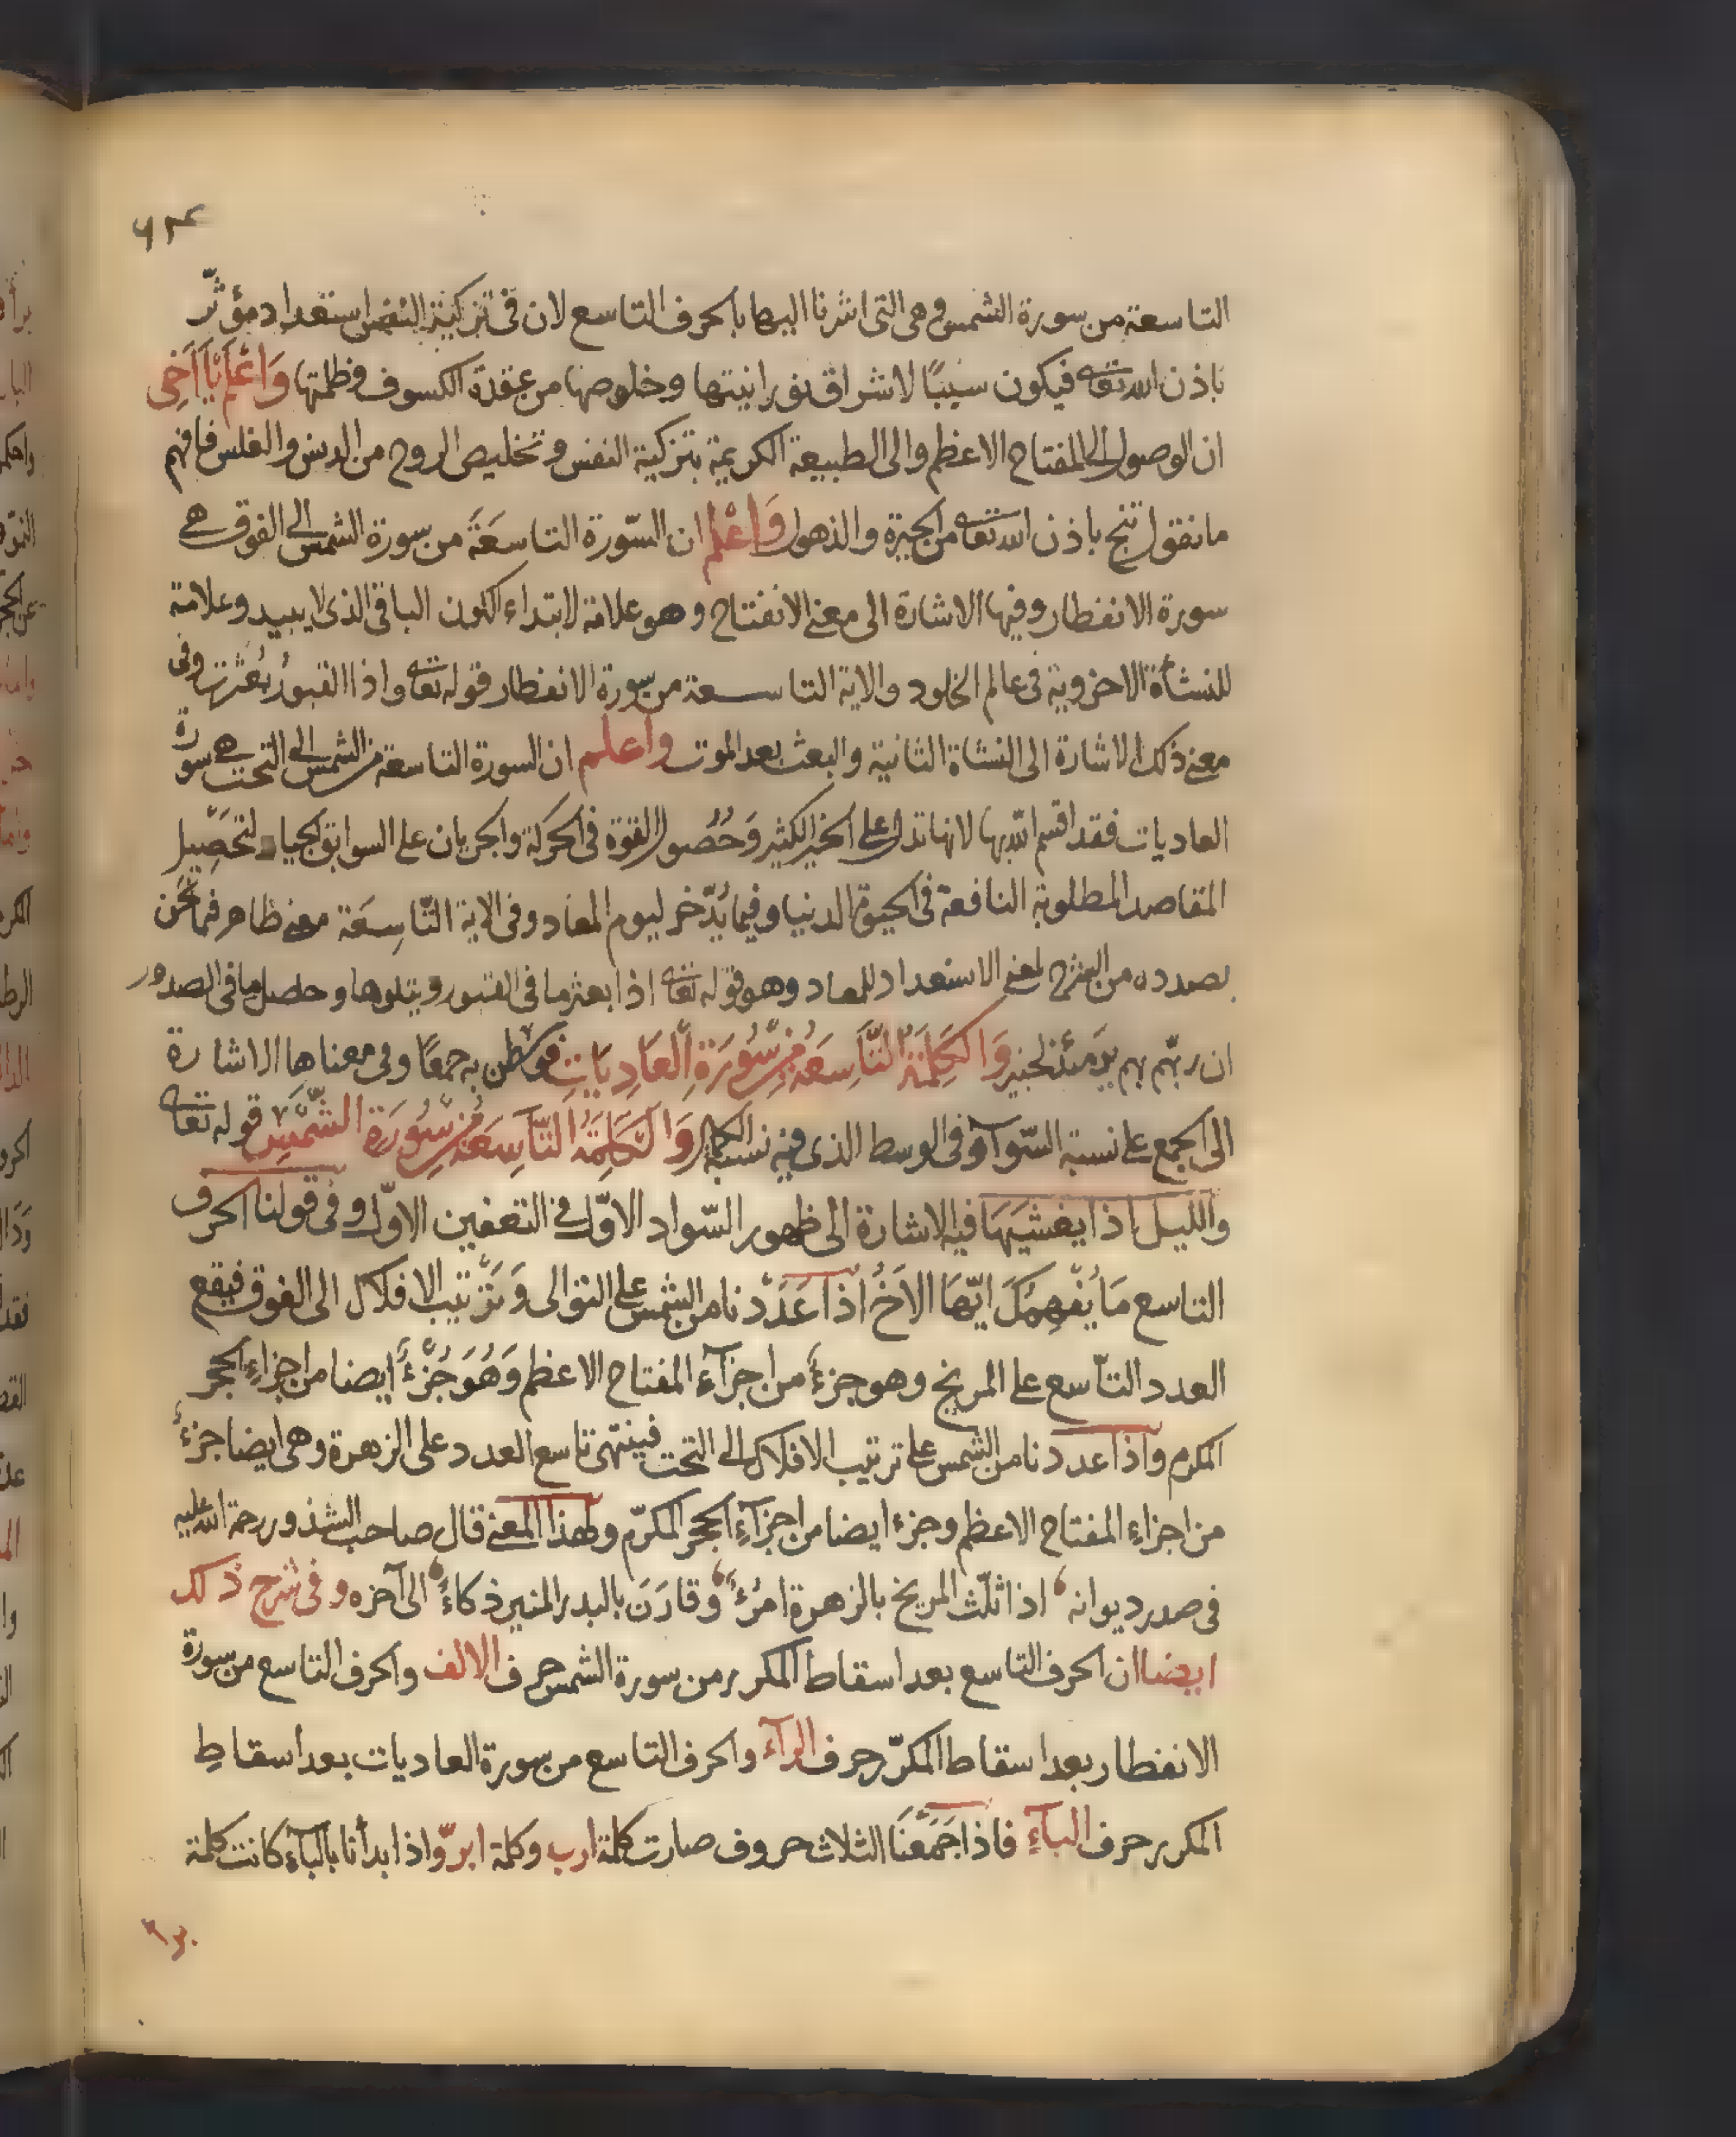 ٦٣
التاسعة من سورة الشمس وهى التى اشرنا اليها بالحرف التاسع لان فى تزكية النفس استعداد مؤثّر
باذن الله تعا فيكون سببًا لاشراق نورانيتها وخلوصها من عقدة الكسوف وظلمتها وَاعْلَم يَا اَخِى
ان الوصول الى المفتاح الاعظم والى الطبيعة الكريمة بتزكية النفس وتخليص الروح من الدنس والغلس فافهم
ما نقول تنج باذن الله تعا من الحيرة والذهول وَاعْلم ان السّورة التاسعَةَ من سورة الشمس الى الفوق هى
سورة الانفطار وفيها الاشارة الى معنى الانفتاح وهو علامة لابتداء الكون الباقى الذى لا يبيد وعلامة
للنشأة الاخروية فى عالم الخلود والاية التاسعة من سورة الانفطار قوله تعا واذا القبورُ بُعْثرت وفى
معنى ذلك الاشارة الى النشاة الثانية والبعث بعد الموت واعلم ان السورة التاسعة من الشمس الى التحت هى سورة
العاديات فقد اقسم الله بها لانها تدل على الخير الكثير وَحُصُول القوة فى الحركة والجريان على السوابق الجياد لتحَصِيل
المقاصد المطلوبة النافعة فى الحيوة الدنيا وفيما يُدّخر ليوم المعاد وفى الاية التّاسِعَة معنى ظاهر فما نَحْن
بصدده من الشرح لمعنى الاستعداد للمعاد وهو قوله تعا اذا بعثر ما فى القبور ويتلوها وحصل ما فى الصدور
ان ربّهم بهم يوَمئذ لخبير وَالكَلِمَةُ التَّاسِعَةُ مِنْ سُّورَةِ الْعَادِيَاتِ فوسطن به جمعًا وفى معناها الاشارة
الى الجمع على نسبة السّوآ وفى الوسط الذى فيه نسبة الكمال وَالكَلِمَةُ التَّاسِعَةُ مِنْ سُورَةِ الشَّمْسِ قوله تعا
والليل اذا يغشيهَا فيه الاشارة الى ظهور السّواد الاوّل فى التعفين الاوّل وفى قولنا الحرف
التاسع مَا يُفْهِمُكَ ايّهَا الاَخُ اذا عَدَدْنا من الشمس على التوالى وَتَرْتيب الافلاك الى الفوق فيقع
العدد التاسع على المريخ وهو جزءٌ من اجزآء المفتاح الاعظم وَهُوَ جُزْءٌ ايضا من اجزاءِ الحجر
المكرم واذا عددنا من الشمس على ترتيب الافلاك الى التحت فينتهى تاسع العدد على الزهرة وهى ايضا جزءٌ
من اجزاءِ المفتاح الاعظم وجزء ايضا من اجزآءِ الحجر المكرّم ولهذا المعنى قال صاحب الشذور رحمة الله عليه
فى صدر ديوانه ، اذا ثلّث المريخ بالزهرة امرُءٌ ، وقارَنَ بالبدر المنير ذكاءٌ ، الى آخره وفى شرح ذلك
ايضا ان الحرف التاسع بعد اسقاط المكرر من سورة الشمس حرف الالف والحرف التاسع من سورة
الانفطار بعد اسقاط المكرّر حرف الرآء والحرف التاسع من سورة العاديات بعد اسقاطِ
المكرر حرف البآءِ فاذا جَمَعْنَا الثلاث حروف صارت كلمة ارب وكلمة ابر واذا ابدأنا بالبآء كانت كلمة